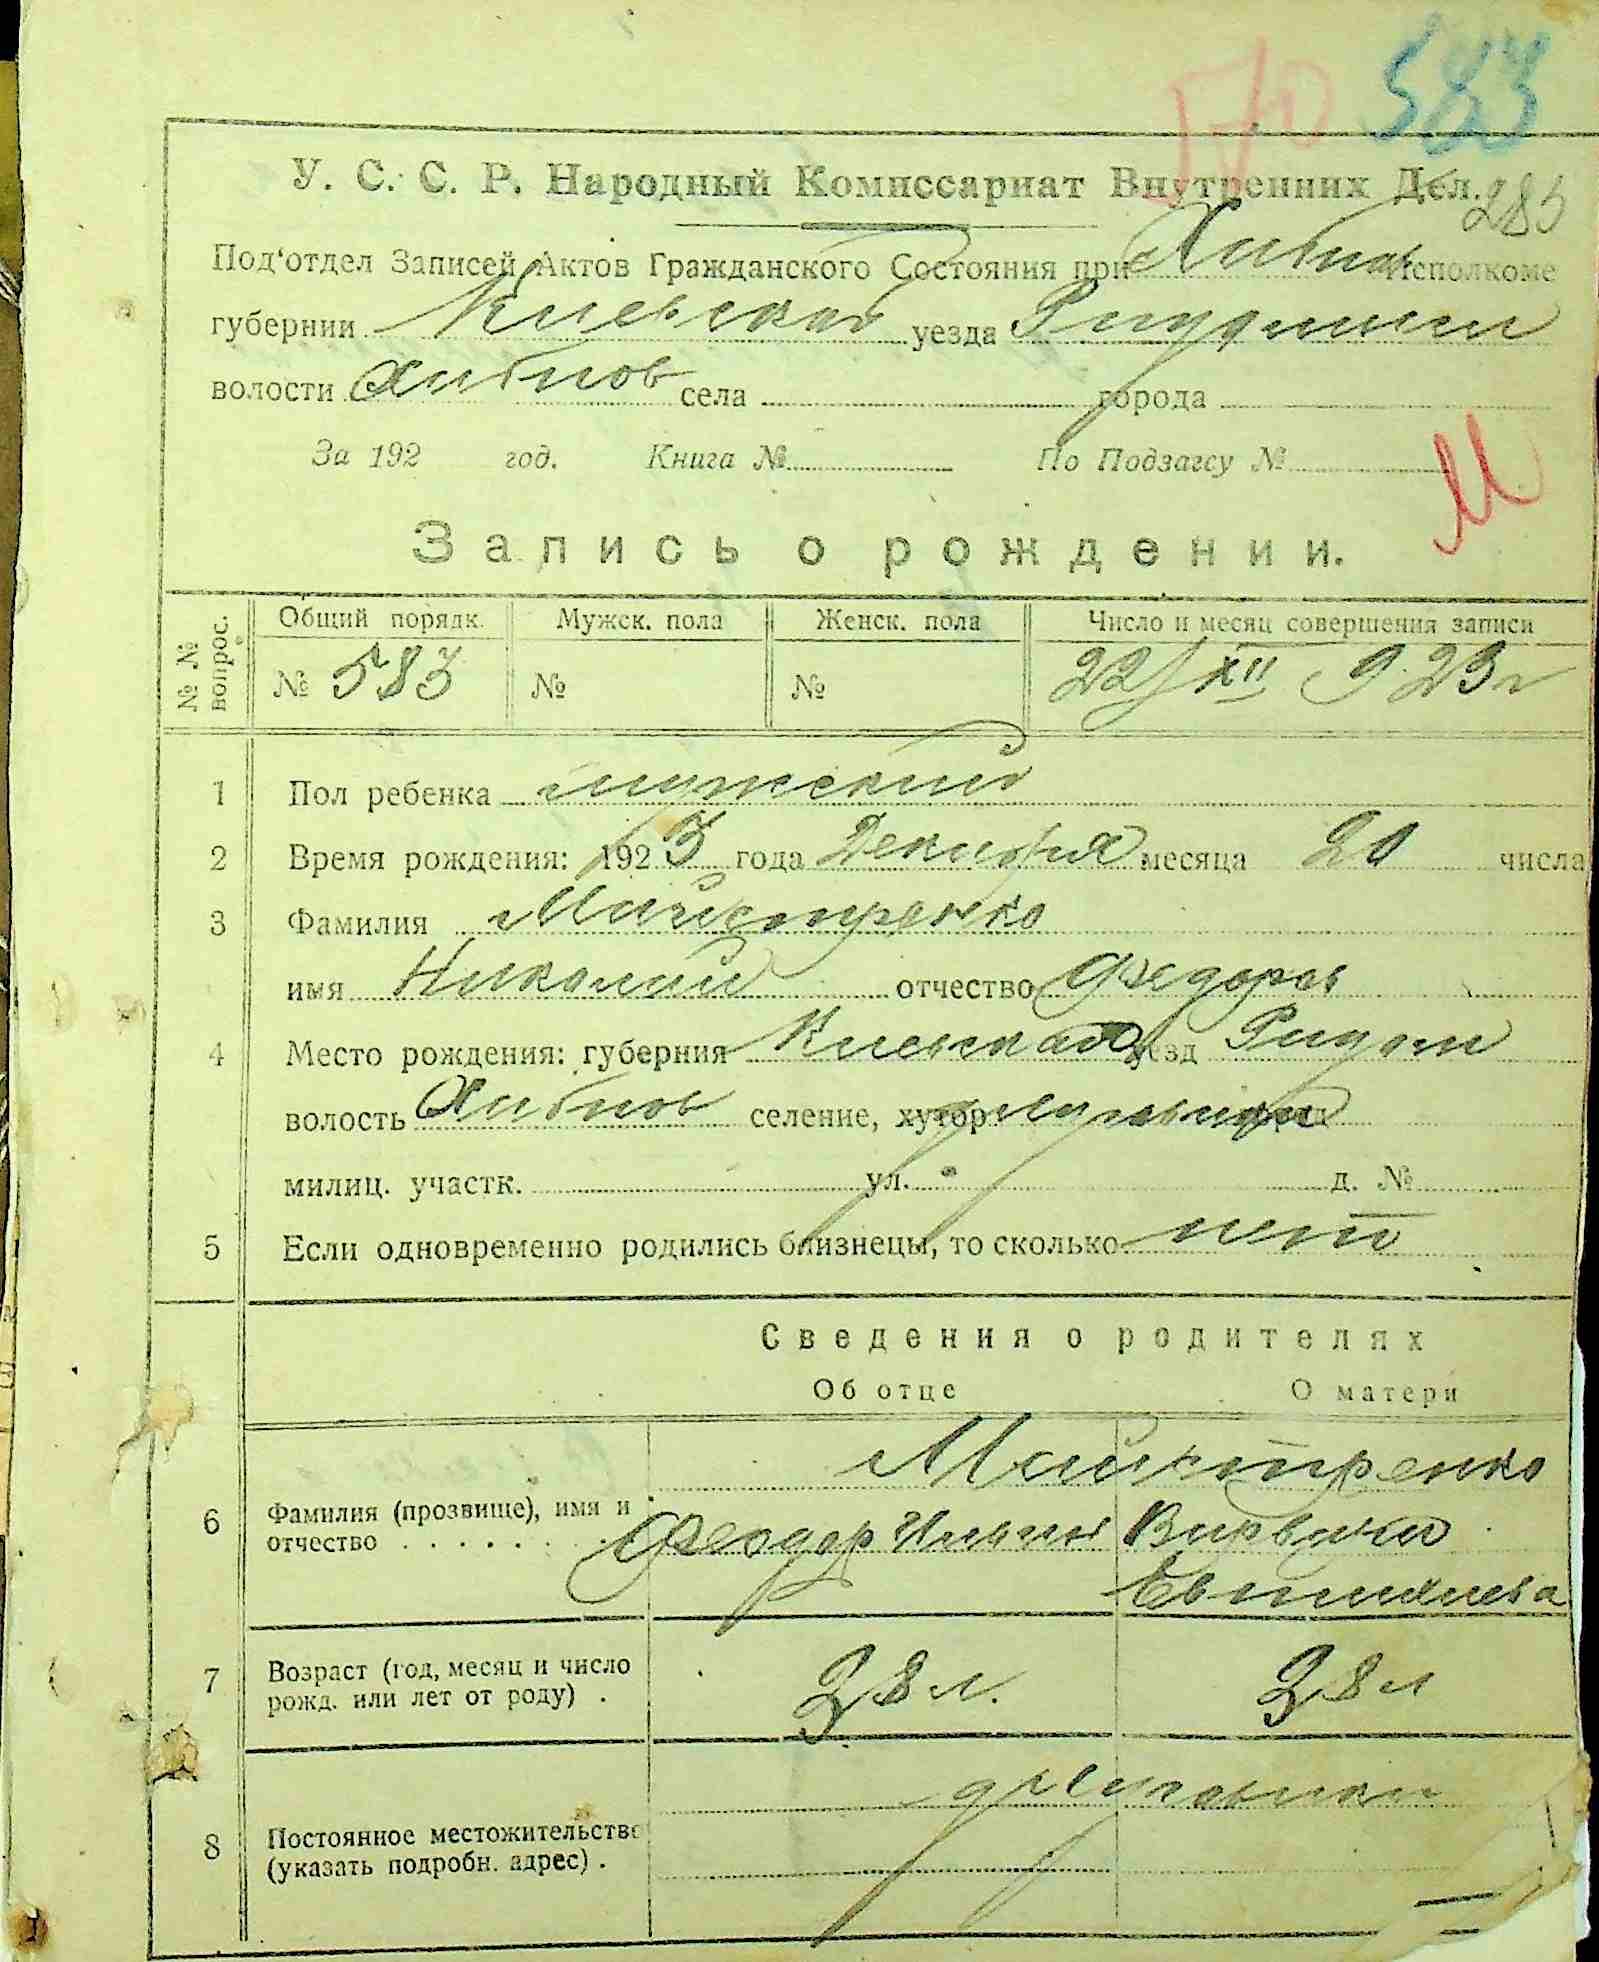 583
У. С. С. Р. Народный Комиссариат Внутренних Дел.
285
Под‘отдел Записей Актов Гражданского Состояния при Хабнов Исполкоме
губернии Киевской уезда
волости Хабнов села города
За 192 год. Книга № По Подзагсу №
М
Запись о рождении.
№ № вопрос.
Общий порядк. Мужск. пола Женск. пола Число и месяц совершения записи
№ 583 № № 22/XII 923 г
1 Пол ребенка мужский
2 Время рождения: 1923 года Декабря месяца 20 числа
3 Фамилия Майстренко
имя Николай отчество Федоров
4 Место рождения: губерния Киевская уезд Радом
волость Хабнов селение, хутор
милиц. участк. ул. д. №
5 Если одновременно родились близнецы, то сколько нет
Сведения о родителях
Об отце О матери
Майстренко
6 Фамилия (прозвище), имя и
отчество . . . . . . . Феодор Ильин Варвара
7 Возраст (год, месяц и число
рожд. или лет от роду) . 28 л. 28 л
8 Постоянное местожительство
(указать подробн. адрес) .